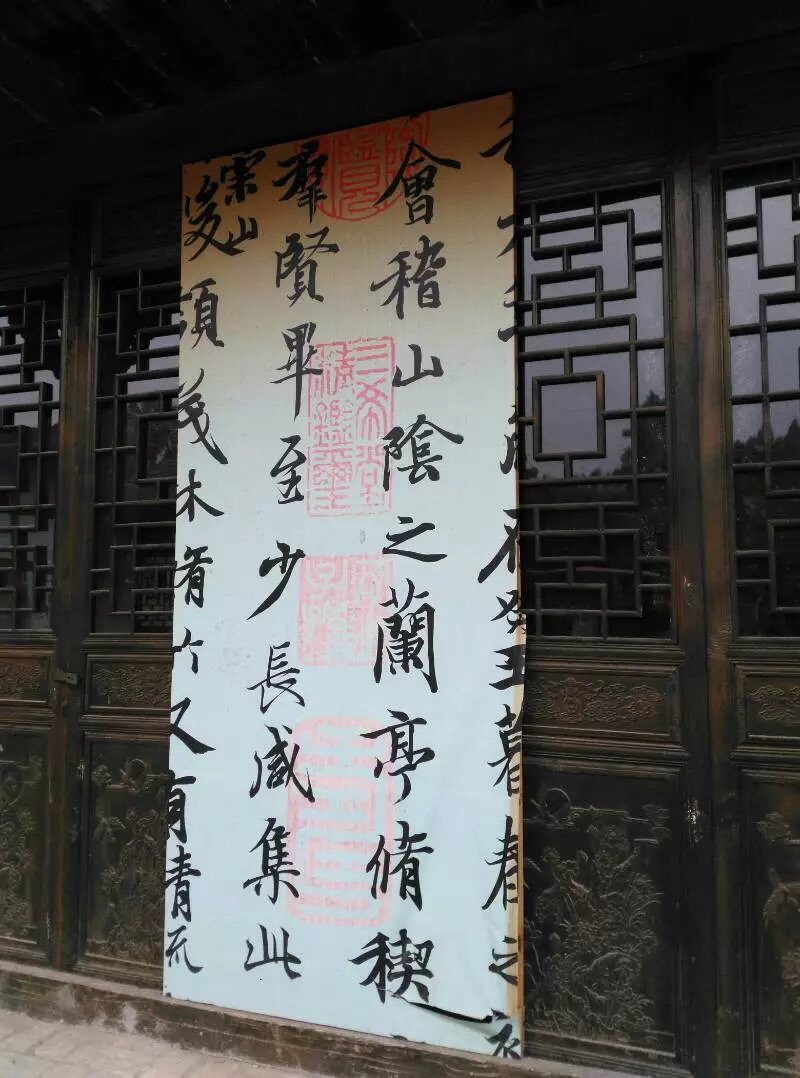 歲在癸丑暮春之初
會稽山陰之蘭亭脩稧
羣賢畢至少長咸集此
崇山
峻領茂林脩竹又有清流
三希堂
精鑑璽